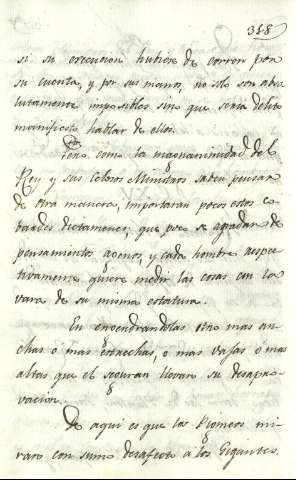 318
si su execucion hubiere de correr por
su cuenta, y por sus manos, no solo son abso
lutamente imposibles sino que seria delito
manifiesto hablar de ellos.
Pero como la magnanimidad del
Rey y sus celosos Ministros saben pensar
de otra manera, importaran pocos estos co
bardes dictamenes, que por se agradan de
pensamientos agenos, y cada hombre respec
tivamente quiere medir las cosas con la
vara de su misma estatura.
En encendrandolas otro mas an
chas ó mas estrechas, ó mas vajas ó mas
altas que el seguran llevan su desapro
vacion.
De aqui es que los Pigmeos mi
raron con sumo desafecto a los Gigantes.